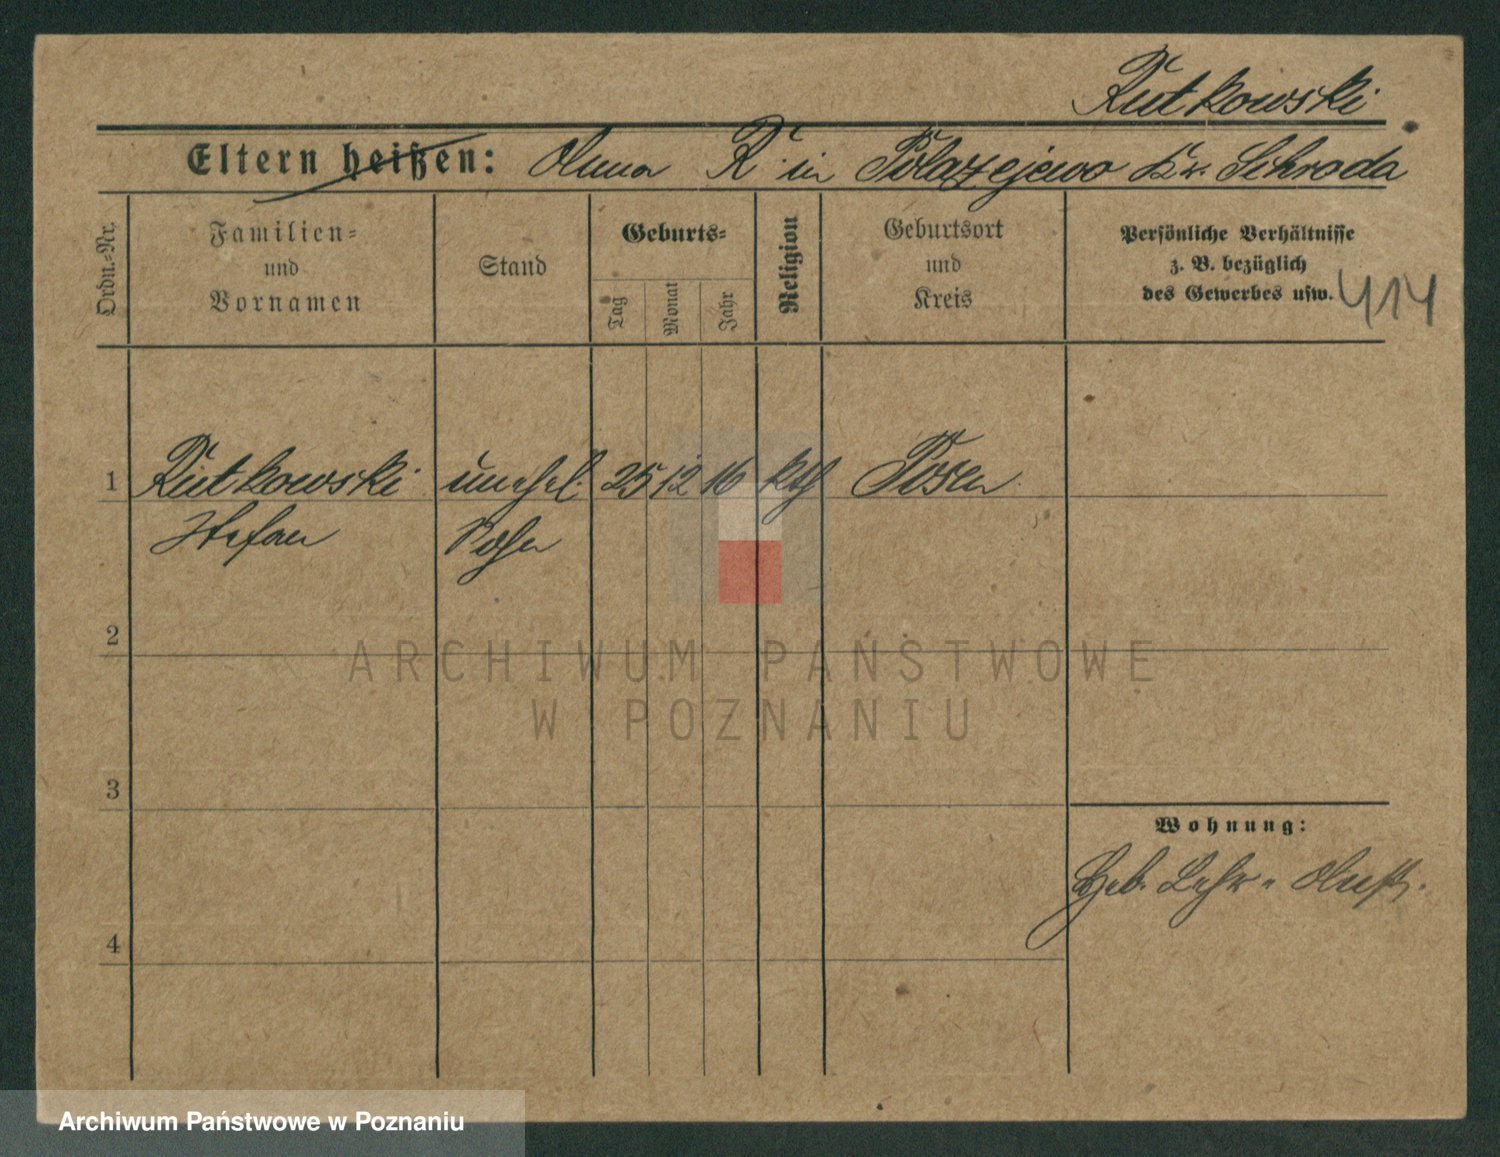 Rutkowski
Eltern heißen: Anna R. in Polazejewo Kr. Schroda
Ordn.-Nr.
Familien-
und
Vornamen
Stand
Geburts-
Tag
Monat
Jahr
Religion
Geburtsort
und
Kreis
Persönliche Verhältnisse
z. B. bezüglich
des Gewerbes usw.
414
1 Rutkowski unehel. 25 12 16 kth Posen
Stefan Sohn
2
ARCHIWUM PAŃSTWOWE
W POZNANIU
3
Wohnung:
Heb. Lehr-Anst.
4
Archiwum Państwowe w Poznaniu